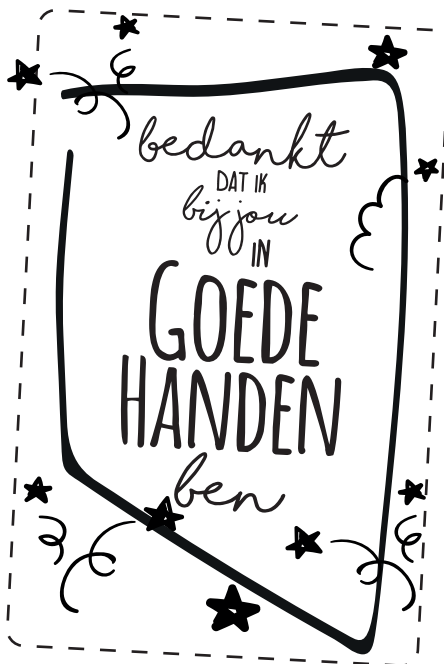 bedankt
DAT IK
bij jou
IN
GOEDE
HANDEN
ben